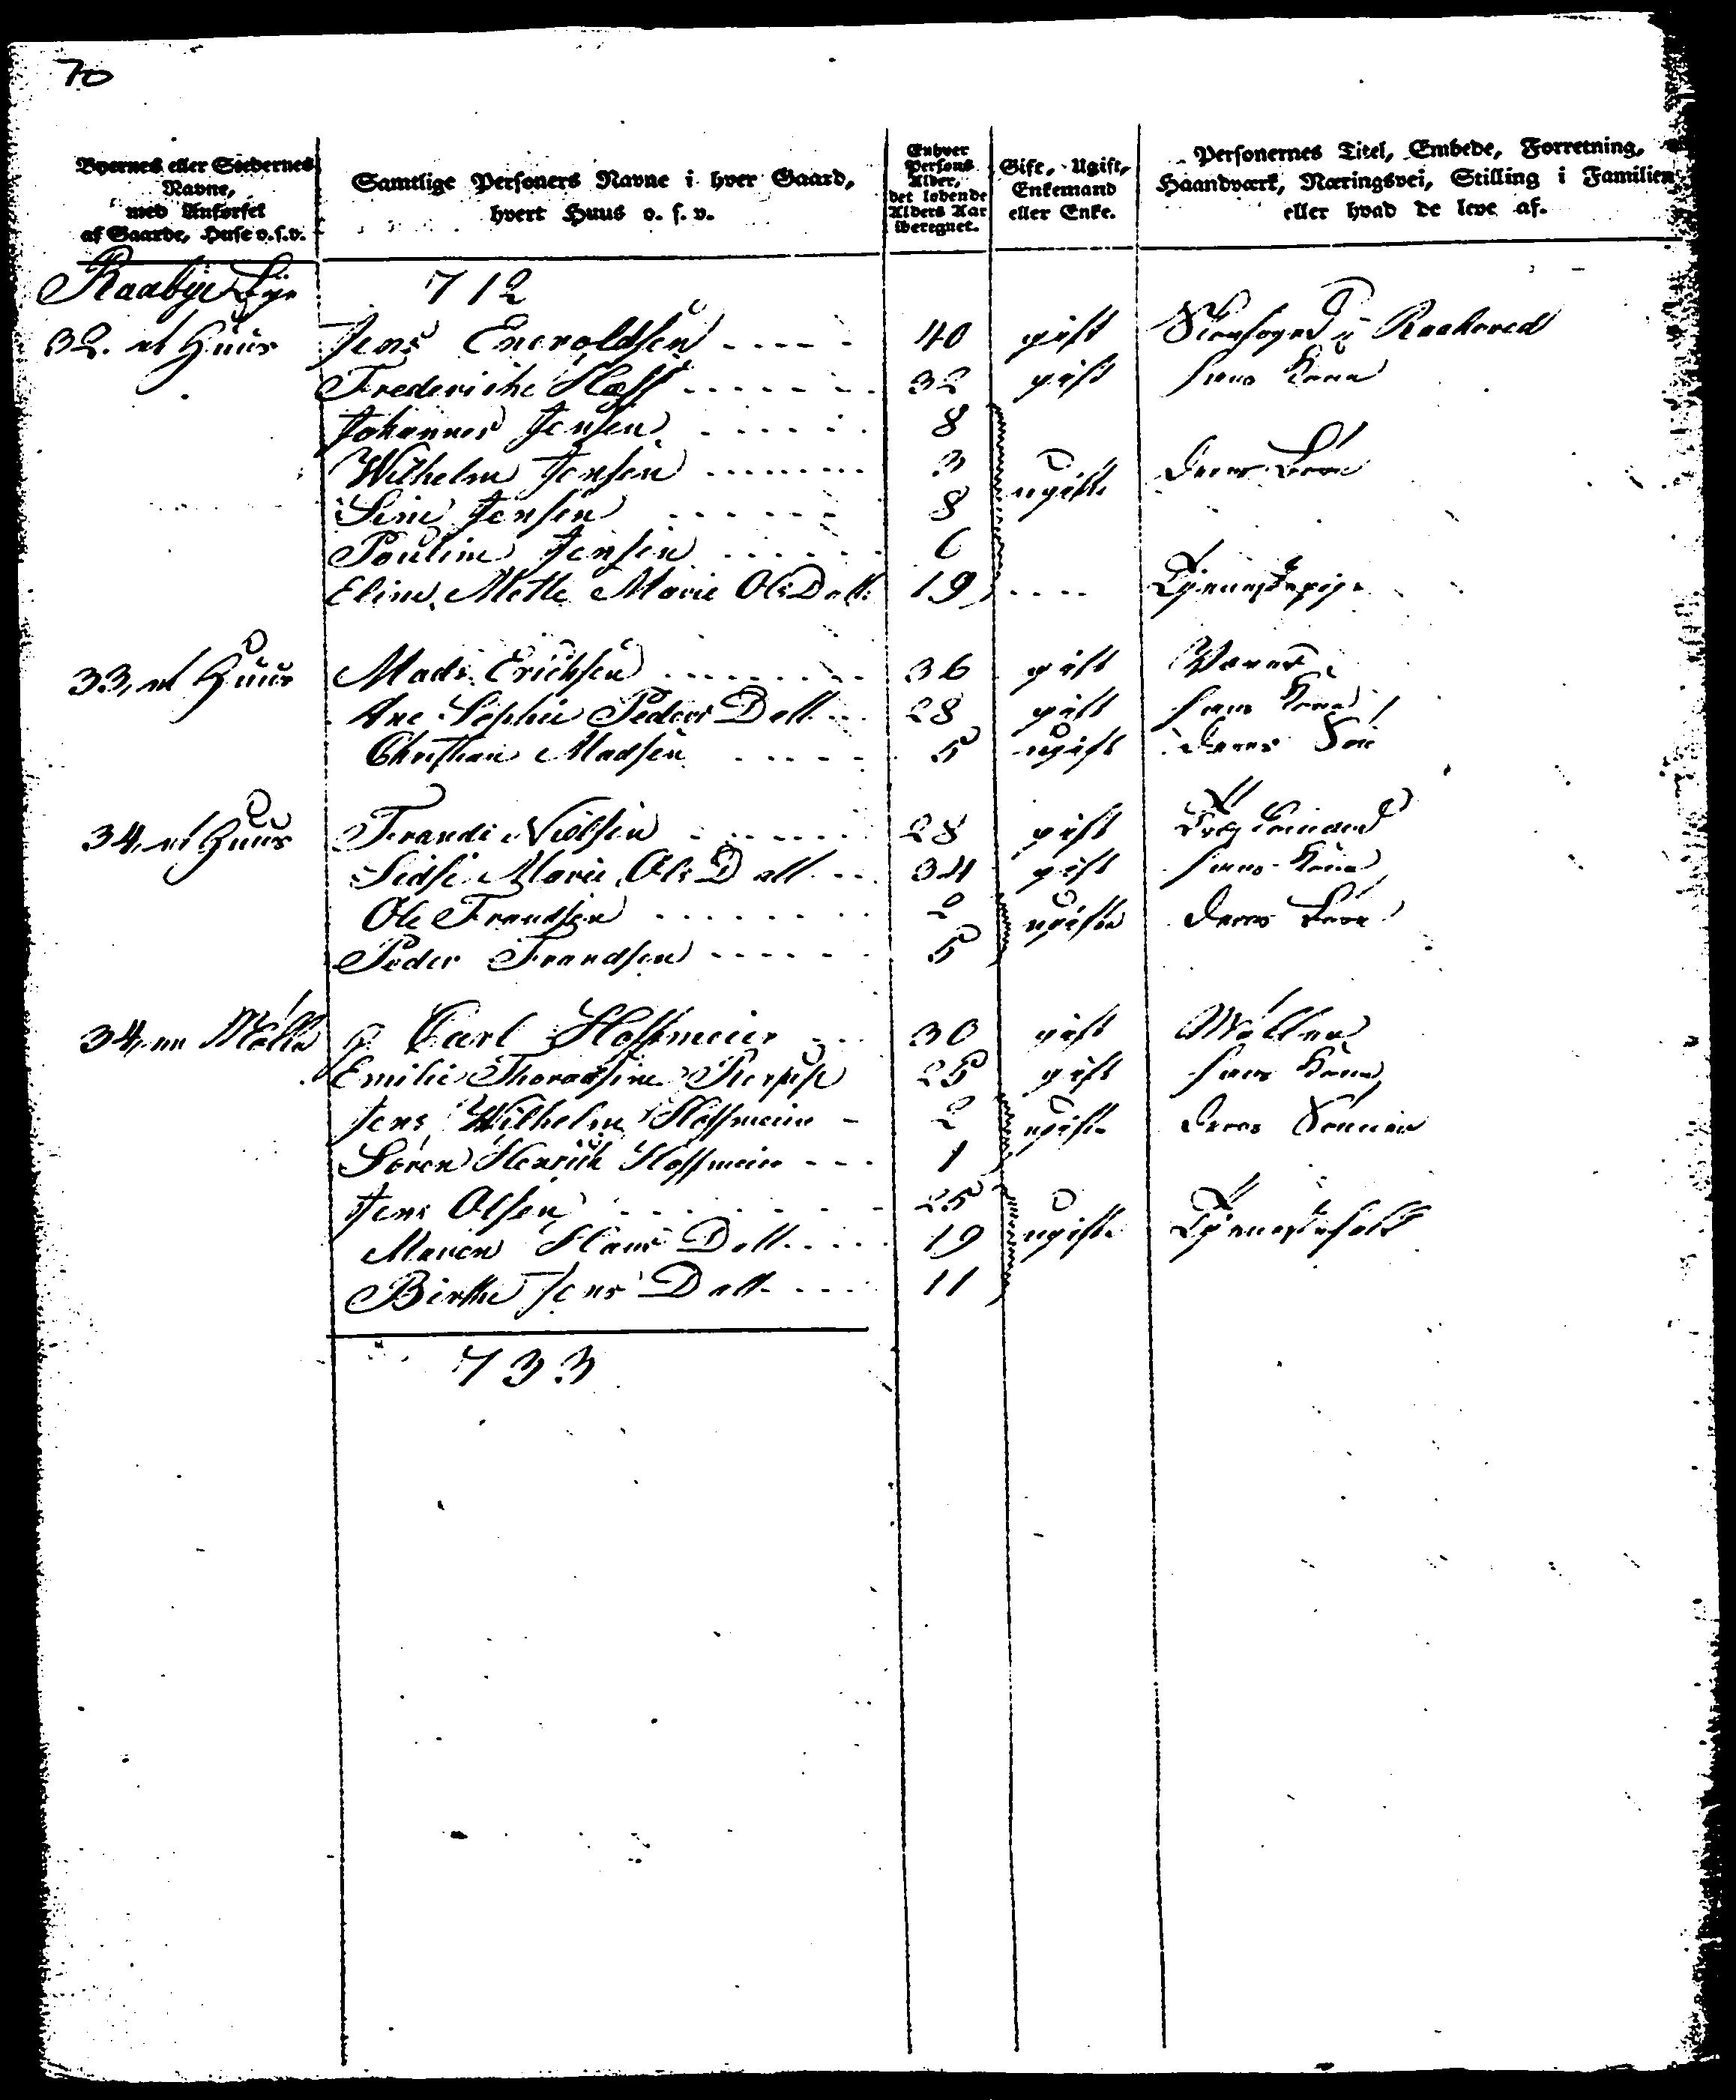 70
Byernes eller Stedernes Navne, med Anførsel af Gaarde, Huse o.s.v.
Samtlige Personers Navne i hver Gaard, hvert Huus o. s. v.
Enhver Persons Alder, det løbende Alders Aar iberegnet.
Gift, Ugift, Enkemand eller Enke.
Personernes Titel, Embede, Forretning, Haandværk, Næringsvei, Stilling i Familien eller hvad de leve af.
Raabye Bye 712
32. et Huus Jens Enevoldsen 40 gift Skovfoged i Raahoved
Frederiche 32 gift hans Kone
Johannes Jensen 8
Wilhelm Jensen 3 ugifte deres Børn
Sine Jensen 8
Pouline Jensen 6
Eline Mette Marie Ols Datt. 19 Tjenestepige
33, et Huus Mads Erichsen 36 gift Væver
Ane Sophie Peders Datt. 28 gift hans Kone
Christian Madsen 5 ugift deres Søn
34, et Huus Frands Nielsen 28 gift
Sidse Marie Ols Datt. 34 gift hans Kone
Ole Frandsen 2 ugifte deres Børn
Peder Frandsen 5
34, en Mølle Carl Hoffmeier 30 gift Møller
Emilie Thorasine 25 gift hans Kone
Jens Wilhelm Hoffmeier 2 ugifte deres Sønner
Søren Henrich Hoffmeier 1
Jens Olsen 25
Maren Hans Datt. 19 ugifte Tjenestefolk
Birthe Jens Datt. 11
733